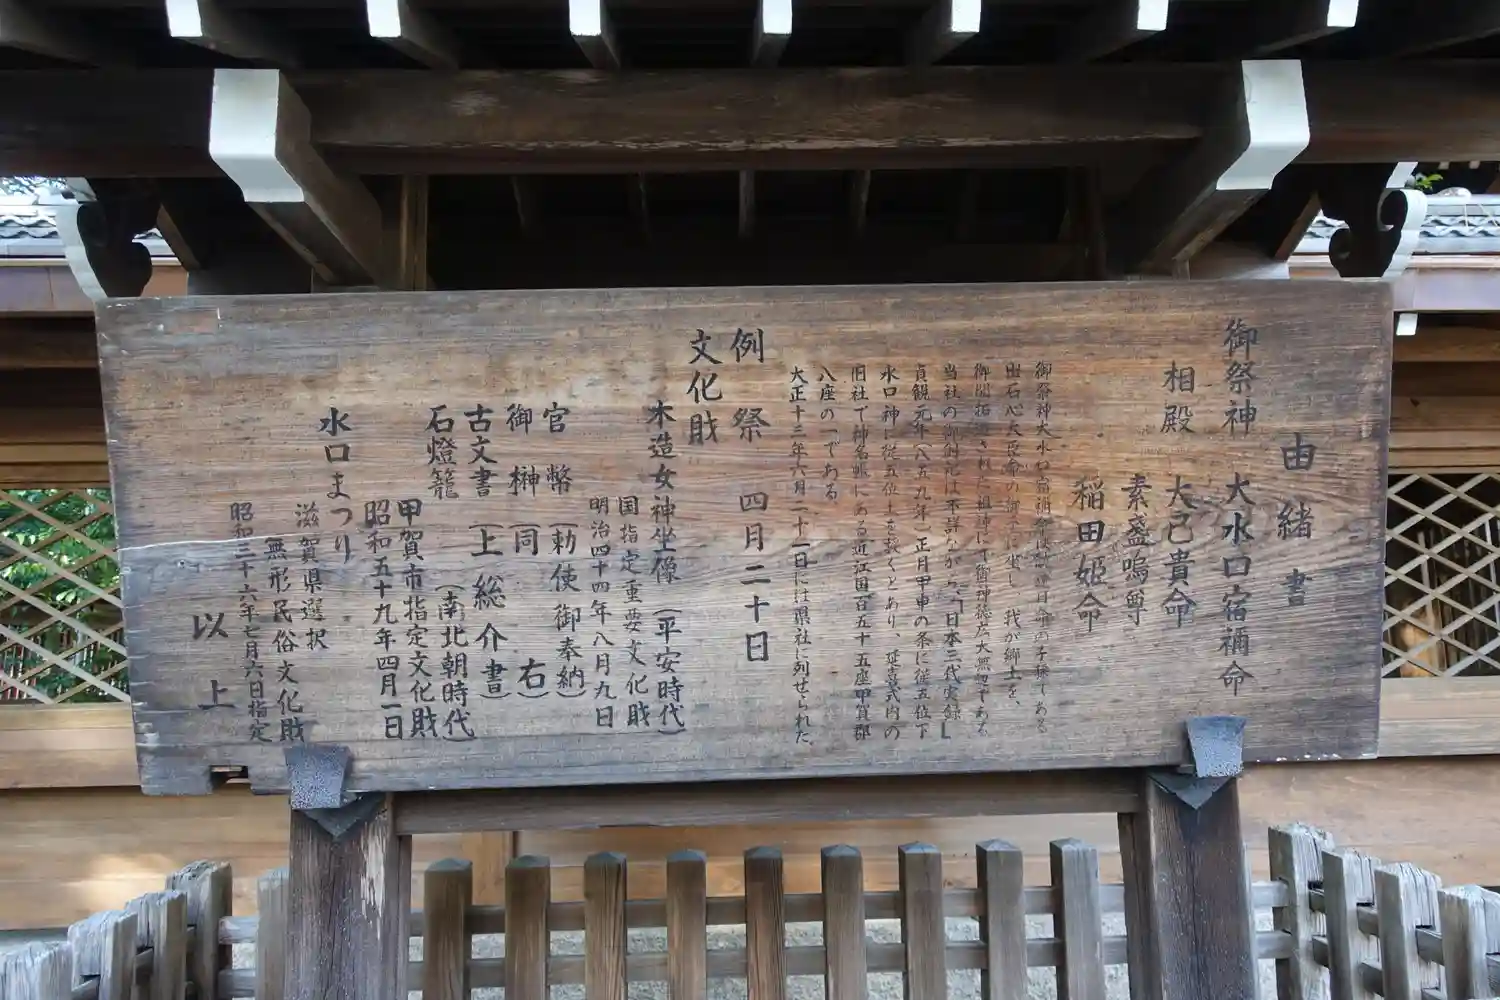 由緒書
御祭神 大水口宿禰命
相殿 大己貴命
素盞嗚尊
稲田姫命
御祭神大水口宿禰命は饒速日命の子孫である
出石心大臣命の御子に坐し、我が郷土を、
御開拓された祖神にて御神徳広大無辺である
当社の御創祀は不詳ながら、「日本三代実録」
貞観元年(八五九年)正月甲申の条に従五位下
水口神に従五位上を授くとあり、延喜式内の
旧社で神名帳にある近江国百五十五座甲賀郡
八座の一である
大正十三年六月二十一日には県社に列せられた。
例祭 四月二十日
文化財
木造女神坐像(平安時代)
国指定重要文化財
明治四十四年八月九日
官幣(勅使御奉納)
御榊(同 右)
古文書(上総介書)
石燈籠(南北朝時代)
甲賀市指定文化財
昭和五十九年四月一日
水口まつり
滋賀県選択
無形民俗文化財
昭和三十六年七月六日指定
以上